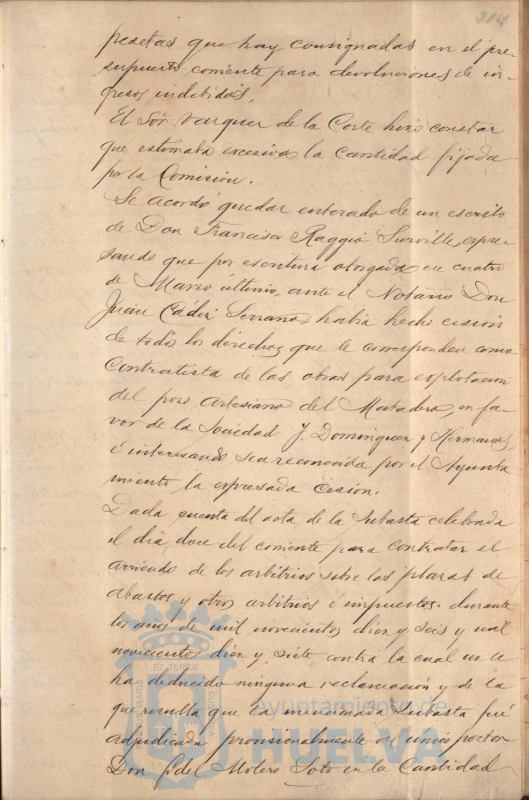 pesetas que hay consignadas en el pre-
supuesto corriente para devoluciones de in-
gresos indebidos.
El Sor. Vazquez de la Corte hizo constar
que estimaba excesiva la cantidad fijada
por la Comisión.
Se acordó quedar enterado de un escrito
de Don Francisco Raggio Surville, expre-
sando que por escritura otorgada en cuatro
de Marzo último, ante el Notario Don
Juan Cádiz Serrano, habia hecho cesión
de todos los derechos que le corresponden como
Contratista de las obras para explotacion
del pozo artesiano del Matadero, en fa-
vor de la Sociedad J. Dominguez y Hermanos,
é interesando sea reconocida por el Ayunta
miento la expresada Cesion.
Dada cuenta del acta de la subasta celebrada
el dia doce del corriente para contratar el
arriendo de los arbitrios sobre las plazas de
abastos y otros arbitrios é impuestos durante
los años de mil novecientos diez y seis y mil
novecientos diez y siete, contra la cual no se
ha deducido ninguna reclamación y de la
que resulta que la mencionada subasta fué
adjudicada provisionalmente al unico postor
Don Fidel Molero Soto en la Cantidad
Ayuntamiento de
HUELVA